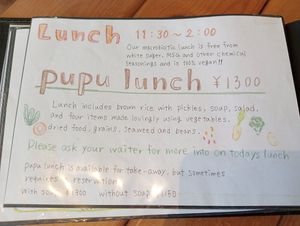 Lunch 11:30~2:00
Our macrobiotic lunch is free from
white super, MSG and other chemical
seasonings and is 100% vegan!!
pupu lunch ¥1300
Lunch includes brown rice with pickles, soup, salad,
and four items made lovingly using vegetables,
dried food, grains, seaweed and beans.
Please ask your waiter for more info on todays lunch
pupu lunch is available for take-away, but sometimes
requires reservation
with soup ¥1300 without soup ¥1150